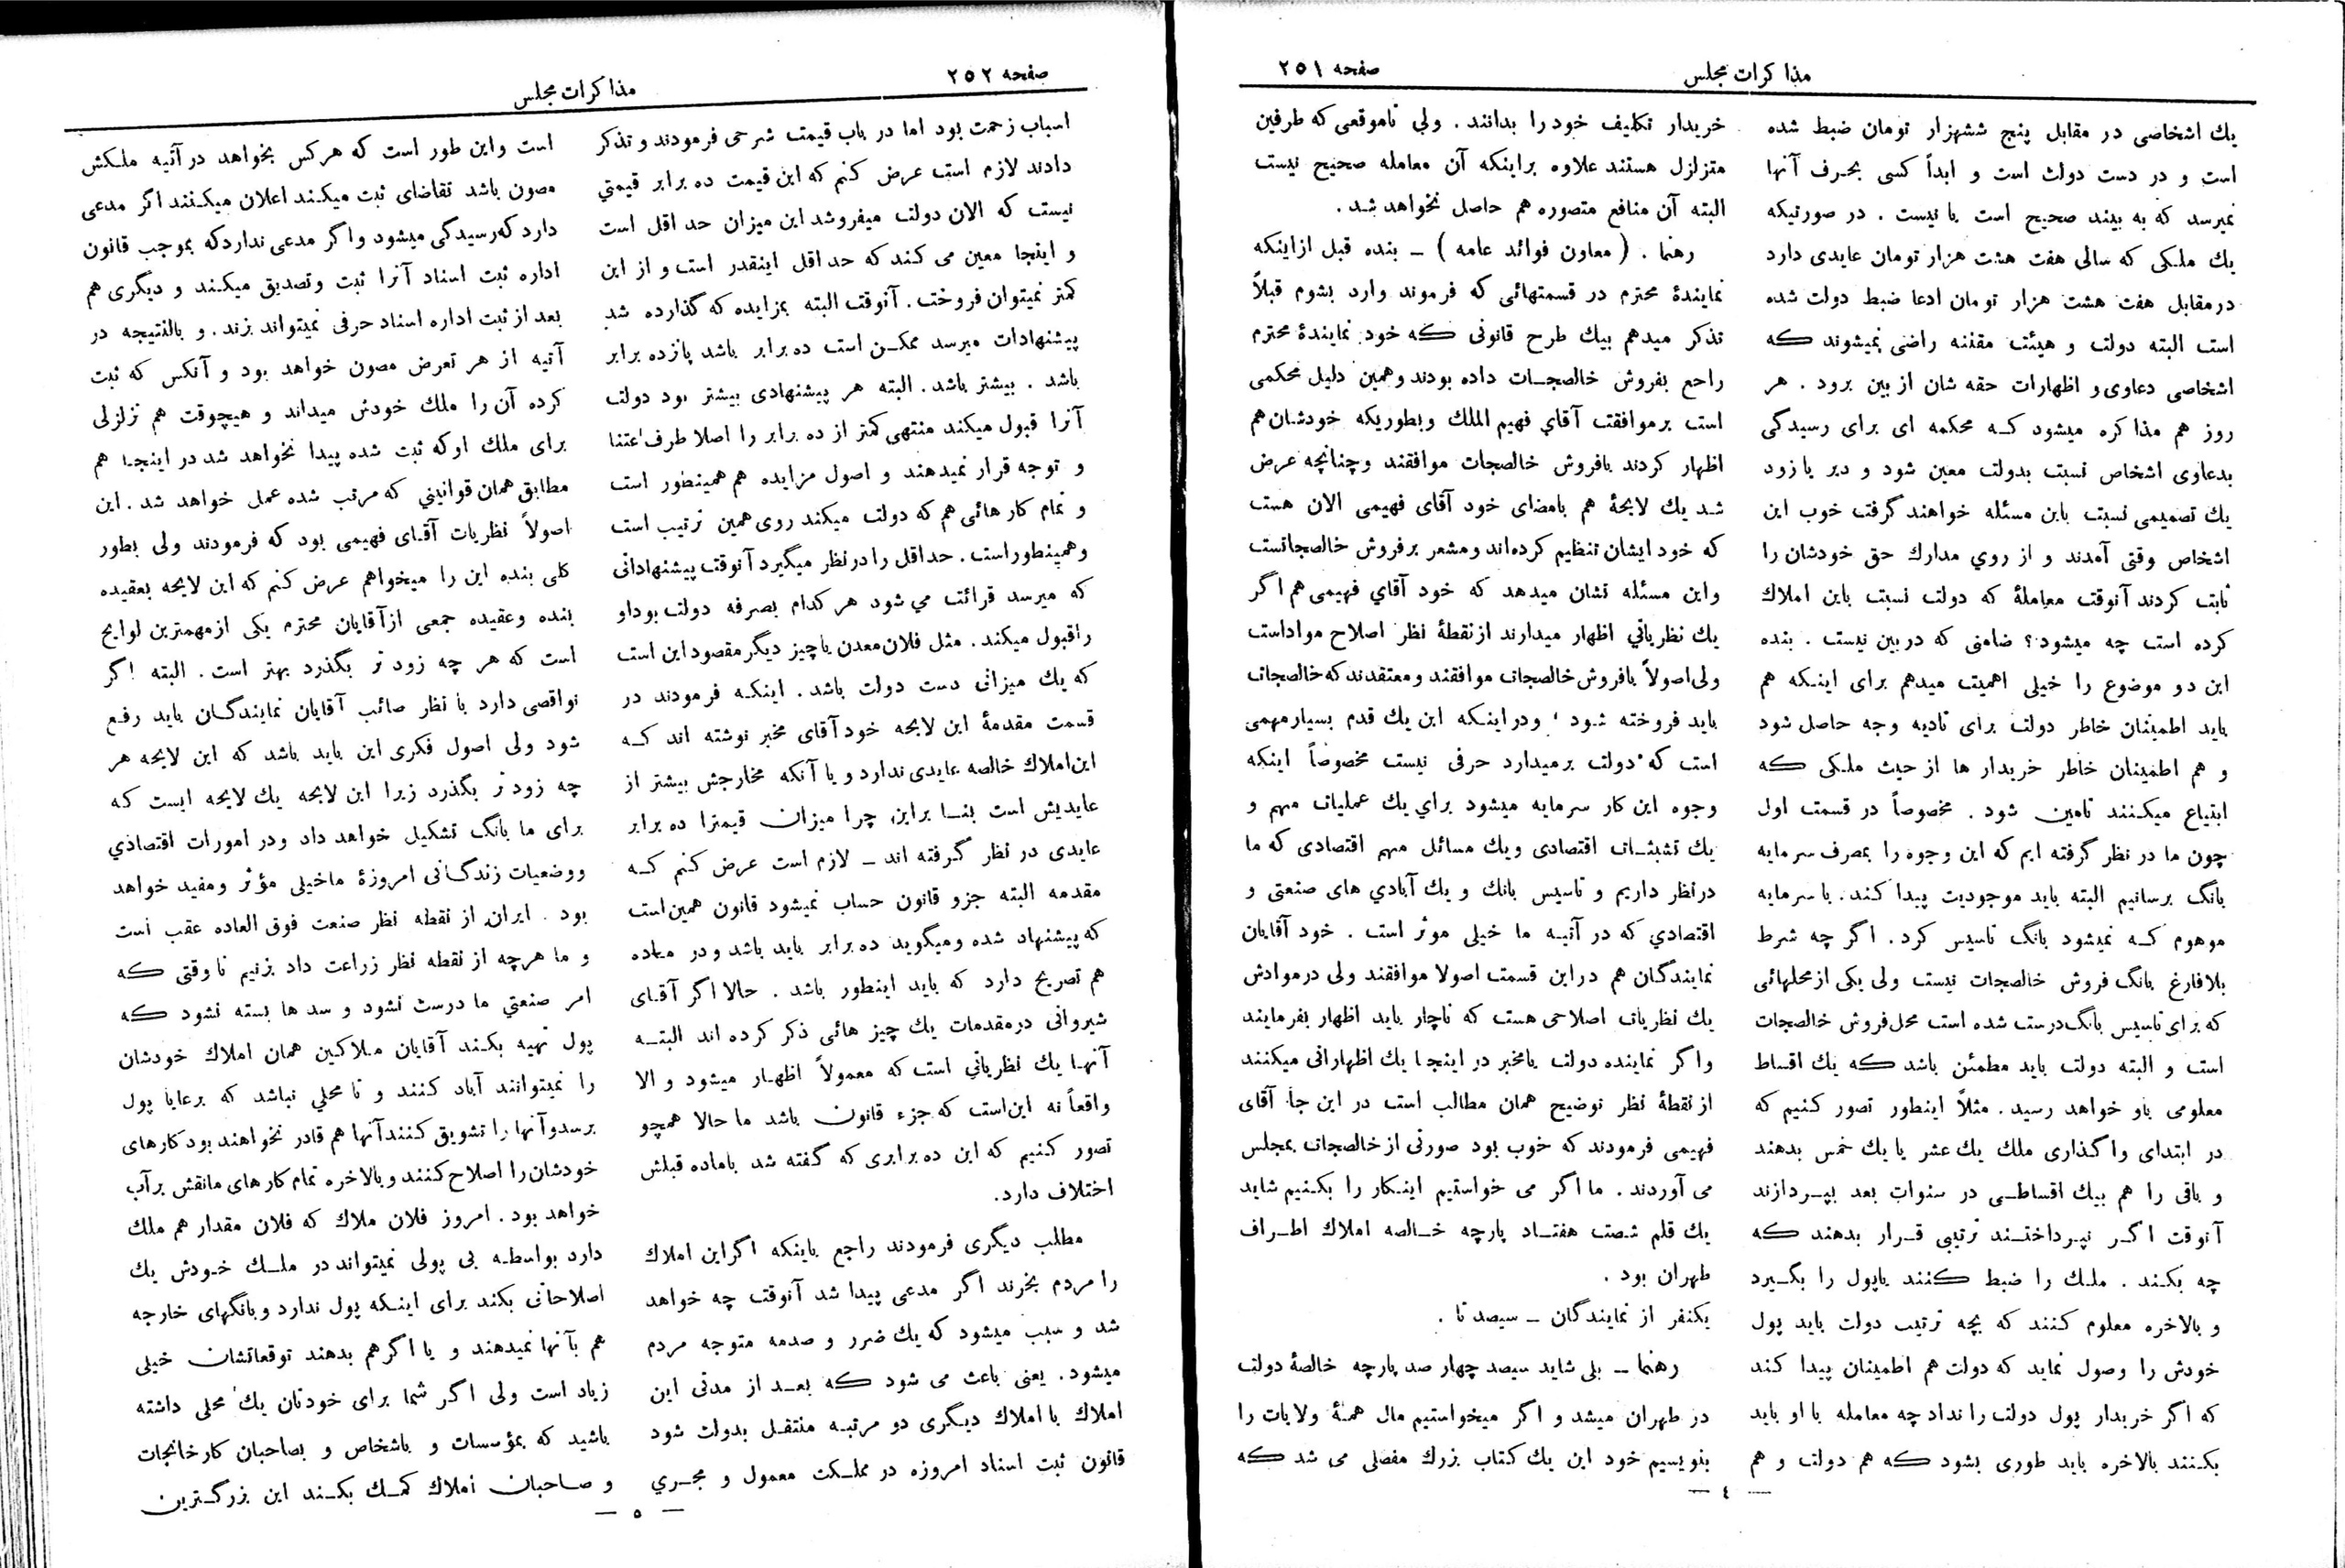 مذاکرات مجلس
صفحه ۲۵۱
یك اشخاصی در مقابل پنج ششهزار تومان ضبط شده
است و در دست دولت است و ابداً کسی بحرف آنها
نمیرسد که به بیند صحیح است یا نیست . در صورتیکه
یك ملکی که سالی هفت هشت هزار تومان عایدی دارد
در مقابل هفت هشت هزار تومان ادعا ضبط دولت شده
است البته دولت و هیئت مقننه راضی نمیشوند که
اشخاصی دعاوی و اظهارات حقه شان از بین برود . هر
روز هم مذاکره میشود کـه محکمه ای برای رسیدگی
بدعاوی اشخاص نسبت بدولت معین شود و دیر یا زود
یك تصمیمی نسبت باین مسئله خواهند گرفت خوب این
اشخاص وقتی آمدند و از روي مدارك حق خودشان را
ثابت کردند آنوقت معاملۀ که دولت نسبت باین املاك
کرده است چه میشود؟ ضامنی که در بین نیست . بنده
این دو موضوع را خیلی اهمیت میدهم برای اینـکه هم
باید اطمینان خاطر دولت برای تادیه وجه حاصل شود
و هم اطمینان خاطر خریدار ها از حیث ملـکی که
ابتیاع میکـنند تامین شود . مخصوصاً در قسمت اول
چون ما در نظر گرفته ایم که این وجوه را بمصرف سرمایه
بانگ برسانیم البته باید موجودیت پیدا کند . با سرمایه
موهوم کـه نمیشود بانگ تاسیس کرد . اگر چه شرط
بلافارغ بانگ فروش خالصجات نیست ولی یکی از محلهائی
که برای تاسیس بانگ درست شده است محل فروش خالصجات
است و البته دولت باید مطمئن باشد که یك اقساط
معلومی باو خواهد رسید . مثلاً اینطور تصور کنیم که
در ابتدای واگذاری ملك یك عشر یا یك خمس بدهند
و باقی را هم بیك اقساطـی در سنوات بعد بپـردازند
آنوقت اگـر نپرداختـند ترتیبی قـرار بدهند که
چه بکـند . ملك را ضبط کنند یا پول را بگـیرد
و بالاخره معلوم کنند که بچه ترتیب دولت باید پول
خودش را وصول نماید که دولت هم اطمینان پیدا کند
که اگر خریدار پول دولت را نداد چه معامله با او باید
بکـنند بالاخره باید طوری بشود که هم دولت و هم
خریدار تکلیف خود را بدانند . ولی تا موقعی که طرفین
متزلزل هستند علاوه بر اینکه آن معامله صحیح نیست
البته آن منافع متصوره هم حاصل نخواهد شد .
رهنما . ( معاون فوائد عامه ) ـ بنده قبل از اینکه
نمایندۀ محترم در قسمتهائی که فرموند وارد بشوم قبلاً
تذکر میدهم بیك طرح قانونی که خود نمایندۀ محترم
راجع بفروش خالصجـات داده بودند و همین دلیل محکمی
است بر موافقت آقاي فهیم الملك و بطوریکه خودشان هم
اظهار کردند با فروش خالصجات موافقند و چنانچه عرض
شـد یك لایحۀ هم بامضای خود آقای فهیمی الان هست
که خود ایشان تنظیم کرده اند و مشعر بر فروش خالصجاتست
و این مسئله نشان میدهد که خود آقاي فهیمی هم اگر
یك نظریاتي اظهار میدارند از نقطۀ نظر اصلاح مواد است
ولی اصولاً با فروش خالصجات موافقند و معتقدند که خالصجات
باید فروخته شود ، و در اینـکه این یك قدم بسیار مهمی
است که دولت بر میدارد حرفی نیست مخصوصاً اینکه
وجوه این کار سرمایه میشود براي یك عملیات مهم و
یك تشبثـات اقتصادی و یك مسائل مهم اقتصادی که ما
در نظر داریم و تاسیس بانك و یك آبادي های صنعتی و
اقتصادي که در آتیـه ما خیلی موثر است . خود آقایان
نمایندگان هم در این قسمت اصولا موافقند ولی در موادش
یك نظریات اصلاحی هست که ناچار باید اظهار بفرمایند
و اگر نماینده دولت یا مخبر در اینجا یك اظهاراتی میکنند
از نقطۀ نظر توضیح همان مطالب است در این جا آقای
فهیمی فرمودند که خوب بود صورتی از خالصجات بمجلس
می آوردند . ما اگر می خواستیم اینـکار را بکـنیم شاید
یك قلم شصت هفتـاد پارچه خـالصه املاك اطـراف
طهران بود .
یکنفر از نمایندگان ـ سیصد تا .
رهنما ـ بلی شاید سیصد چهار صد پارچه خالصۀ دولت
در طهران میشد و اگر میخواستیم مال همۀ ولایات را
بنویسیم خود این یك کتاب بزرك مفصلی می شد که
— ٤ —
مذاکرات مجلس
صفحه ۲۵۲
اسباب زحمت بود اما در باب قیمت شرحی فرمودند و تذکر
دادند لازم است عرض کنم که این قیمت ده برابر قیمتي
نیست که الان دولت میفروشد این میزان حد اقل است
و اینجا معین می کند که حد اقل اینقدر است و از این
کمتر نمیتوان فروخت . آنوقت البته بمزایده که گذارده شد
پیشنهادات میرسد ممکـن است ده برابر باشد پانزده برابر
باشد . بیشتر باشد . البته هر پیشنهادی بیشتر بود دولت
آنرا قبول میکند منتهی کمتر از ده برابر را اصلا طرف اعتنا
و توجه قرار نمیدهند و اصول مزایده هم همینطور است
و تمام کار هائی هم که دولت میکند روی همین ترتیب است
و همینطور است . حد اقل را در نظر میگیرد آنوقت پیشنهاداتی
که میرسد قرائت مي شود هر کدام بصرفه دولت بود او
را قبول میکند . مثل فلان معدن یا چیز دیگر مقصود این است
که یك میزانی دست دولت باشد . اینکـه فرمودند در
قسمت مقدمۀ این لایحه خود آقای مخبر نوشته اند کـه
این املاك خالصه عایدی ندارد و یا آنکه مخارجش بیشتر از
عایدیش است بنـا براین چرا میزان قیمترا ده برابر
عایدی در نظر گـرفته اند ـ لازم است عرض کنم کـه
مقدمه البته جزو قانون حساب نمیشود قانون همین است
که پیشنهاد شده و میگوید ده برابر باید باشد و در ماده
هم تصریح دارد که باید اینطور باشد . حالا اگر آقـای
شیروانی در مقدمات یك چیز هائی ذکر کرده اند البتـه
آنهـا یك نظریاتي است که معمولاً اظهـار میشود و الا
واقعاً نه این است که جزء قانون باشد ما حالا همچو
تصور کنیم که این ده برابری که گفته شد با ماده قبلش
اختلاف دارد .
مطلب دیگری فرمودند راجع باینکه اگر این املاك
را مردم بخرند اگر مدعی پیدا شد آنوقت چه خواهد
شد و سبب میشود که یك ضرر و صدمه متوجه مردم
میشود . یعنی باعث می شود که بعـد از مدتی این
املاك با املاك دیـگری دو مرتبـه منتقـل بدولت شود
قانون ثبت اسناد امروزه در مملـکت معمول و مجـري
است و این طور است که هر کس بخواهد در آتیه ملـکش
مصون باشد تقاضای ثبت میکـند اعلان میکـنند اگر مدعی
دارد که رسیدگی میشود و اگر مدعی ندارد که بموجب قانون
اداره ثبت اسناد آنرا ثبت و تصدیق میکـند و دیگری هم
بعد از ثبت اداره اسناد حرفی نمیتواند بزند . و بالنتیجه در
آتیه از هر تعرض مصون خواهد بود و آنکس که ثبت
کرده آن را ملك خودش میداند و هیچوقت هم تزلزلی
برای ملك او که ثبت شده پیدا نخواهد شد در اینجـا هم
مطابق همان قوانیني که مرتب شده عمل خواهد شد . این
اصولاً نظریات آقـای فهیمی بود که فرمودند ولی بطور
کلی بنده این را میخواهم عرض کنم که این لایحه بعقیده
بنده و عقیده جمعی از آقایان محترم یکی از مهمترین لوایح
است که هر چه زود تر بگذرد بهتر است . البته اگر
نواقصی دارد با نظر صائب آقایان نمایندگـان باید رفـع
شود ولی اصول فکری این باید باشد که این لایحه هر
چه زود تر بگذرد زیرا این لایحه یك لایحه ایست کـه
برای ما بانگ تشکیل خواهد داد و در امورات اقتصادي
و وضعیات زندگـانی امروزۀ ما خیلی مؤثر و مفید خواهد
بود . ایران از نقطه نظر صنعت فوق العاده عقب است
و ما هر چه از نقطه نظر زراعت داد بزنیم تا وقتی که
امر صنعتي ما درست نشود و سد ها بسته نشود که
پول تهیه بکـند آقایان مـلاکین همان املاك خودشان
را نمیتوانند آباد کنند و تا محلي نباشد که برعایا پول
برسد و آنها را تشویق کنند آنها هم قادر نخواهند بود کارهای
خودشان را اصلاح کنند و بالاخره تمام کار های ما نقش بر آب
خواهد بود . امروز فلان ملاك که فلان مقدار هم ملك
دارد بواسطـه بی پولی نمیتواند در ملـك خـودش یك
اصلاحاتی بکند برای اینـکه پول ندارد و بانگهای خارجه
هم بآنها نمیدهند و یا اگر هم بدهند توقعاتشان خیلی
زیاد است ولی اگر شما برای خودتان یك محلی داشته
باشید که بمؤسسات و باشخاص و بصاحبان کارخانجات
و صـاحبان املاك کمـك بکـند این بزرگـترین
— ٥ —